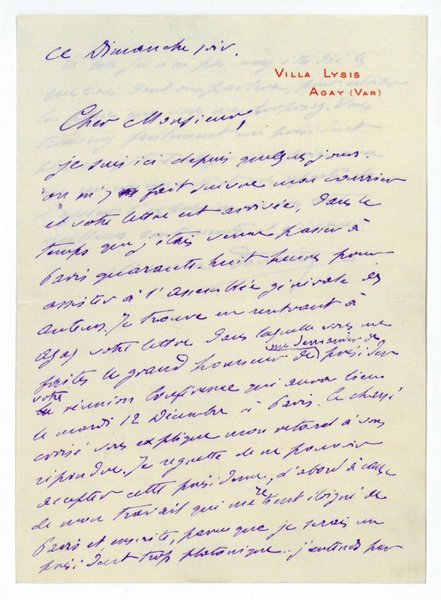 ce Dimanche soir.
VILLA LYSIS
AGAY (VAR)
Cher Monsieur,
je suis ici depuis quelques jours.
on m'y fait suivre mon courrier
et votre lettre est arrivée, dans le
temps que j'étais venu passer à
Paris quarante-huit heures pour
assister à l'assemblée générale des
auteurs. Je trouve en rentrant à
Agay votre lettre dans laquelle vous me
faites le grand honneur de me demander de présider
votre réunion conférence qui aura lieu
le mardi 12 Décembre à Paris. Ce chassé
croisé vous explique mon retard à vous
répondre. Je regrette de ne pouvoir
accepter cette présidence, d'abord à cause
de mon travail qui me retient éloigné de
Paris et ensuite, parce que je serais un
président trop platonique. j'entends par